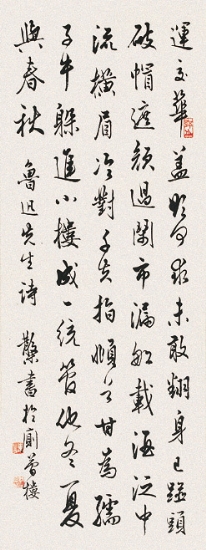 運交華蓋欲何求未敢翻身已碰頭
破帽遮顏過鬧市漏船載酒泛中
流橫眉冷對千夫指俯首甘為孺
子牛躲進小樓成一統管他冬夏
與春秋 魯迅先生詩 書於
樓